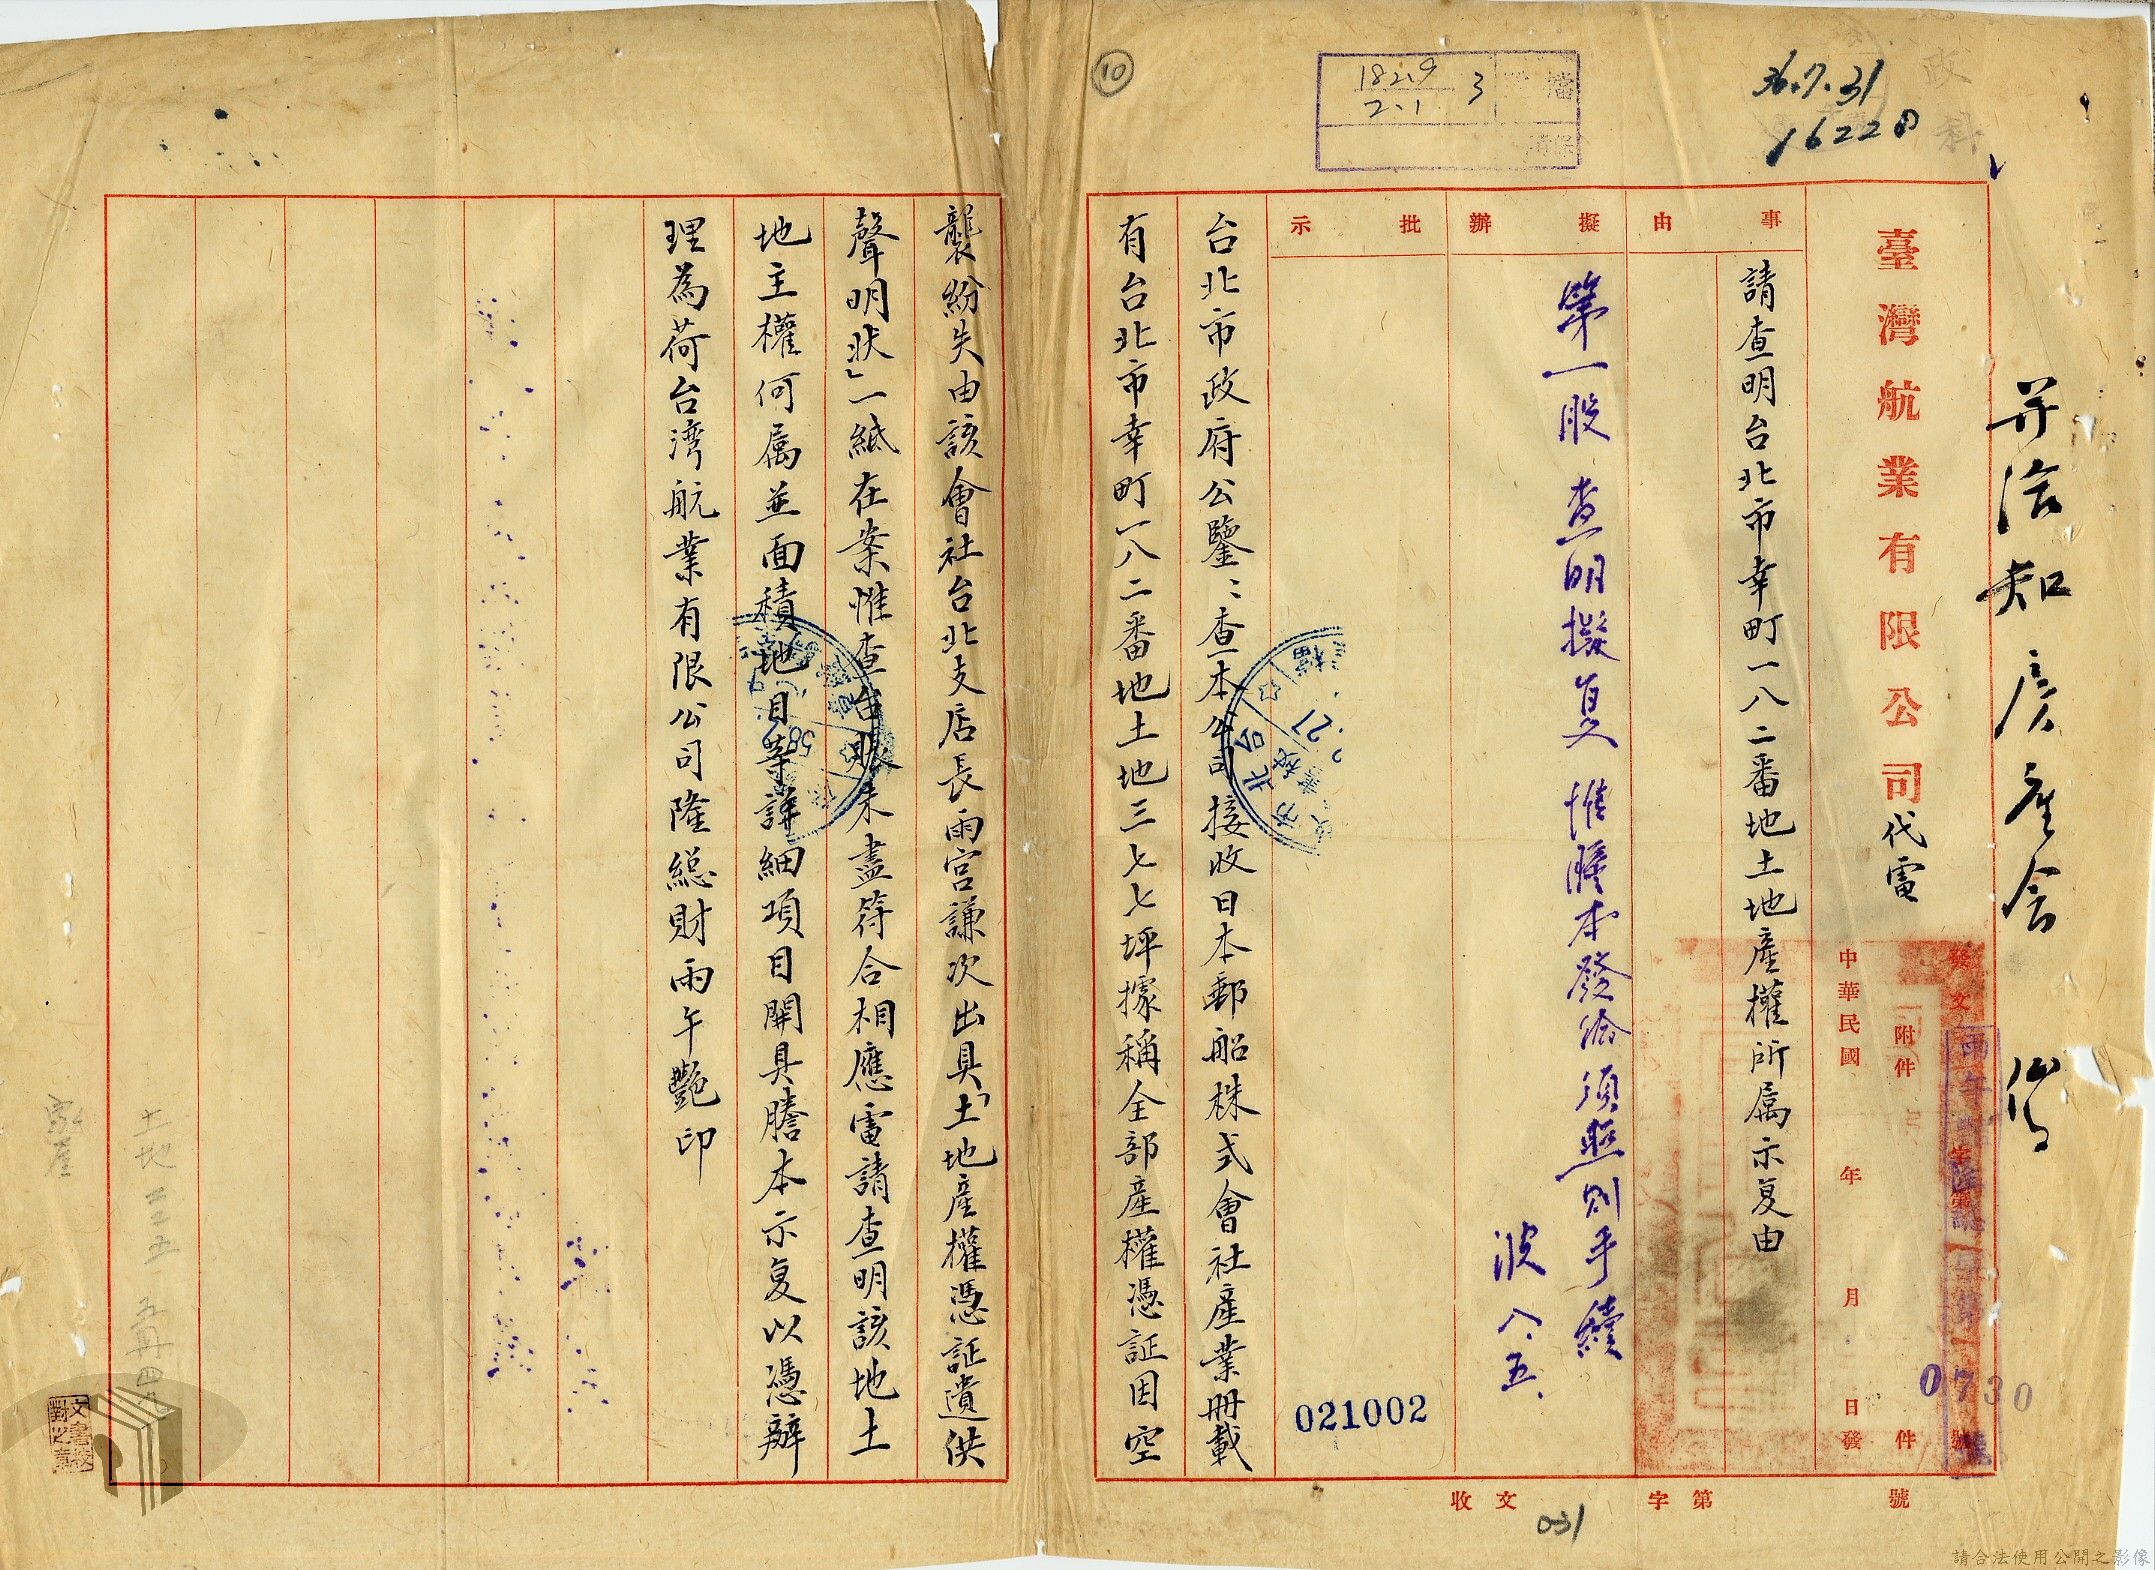 36.7.31
16228
政
科
⑩
1829
2.1
3
檔
并洽知房產會
臺灣航業有限公司代電
發文
字第
號
附件
件
中華民國
年
月
日發
0730
事由
請查明台北市幸町一八二番地土地產權所属示复由
擬辦
第一股查明擬复惟謄本發給須照則手續
波八.五.
批示
021002
台北市政府公鑒:查本公司接收日本郵船株式會社產業冊載
有台北市幸町一八二番地土地三七七坪據稱全部產權憑証因空
襲紛失由該會社台北支店長雨宫謙次出具「土地產權憑証遺供
聲明狀」一紙在案惟查台賬未盡符合相應電請查明該地土
地主權何属並面積地目等詳細項目開具謄本示复以憑辦
理為荷台湾航業有限公司隆総財雨午艷印
收文
字第
號
031
土地二二五
家屋
文書校對之章
請合法使用公開之影像